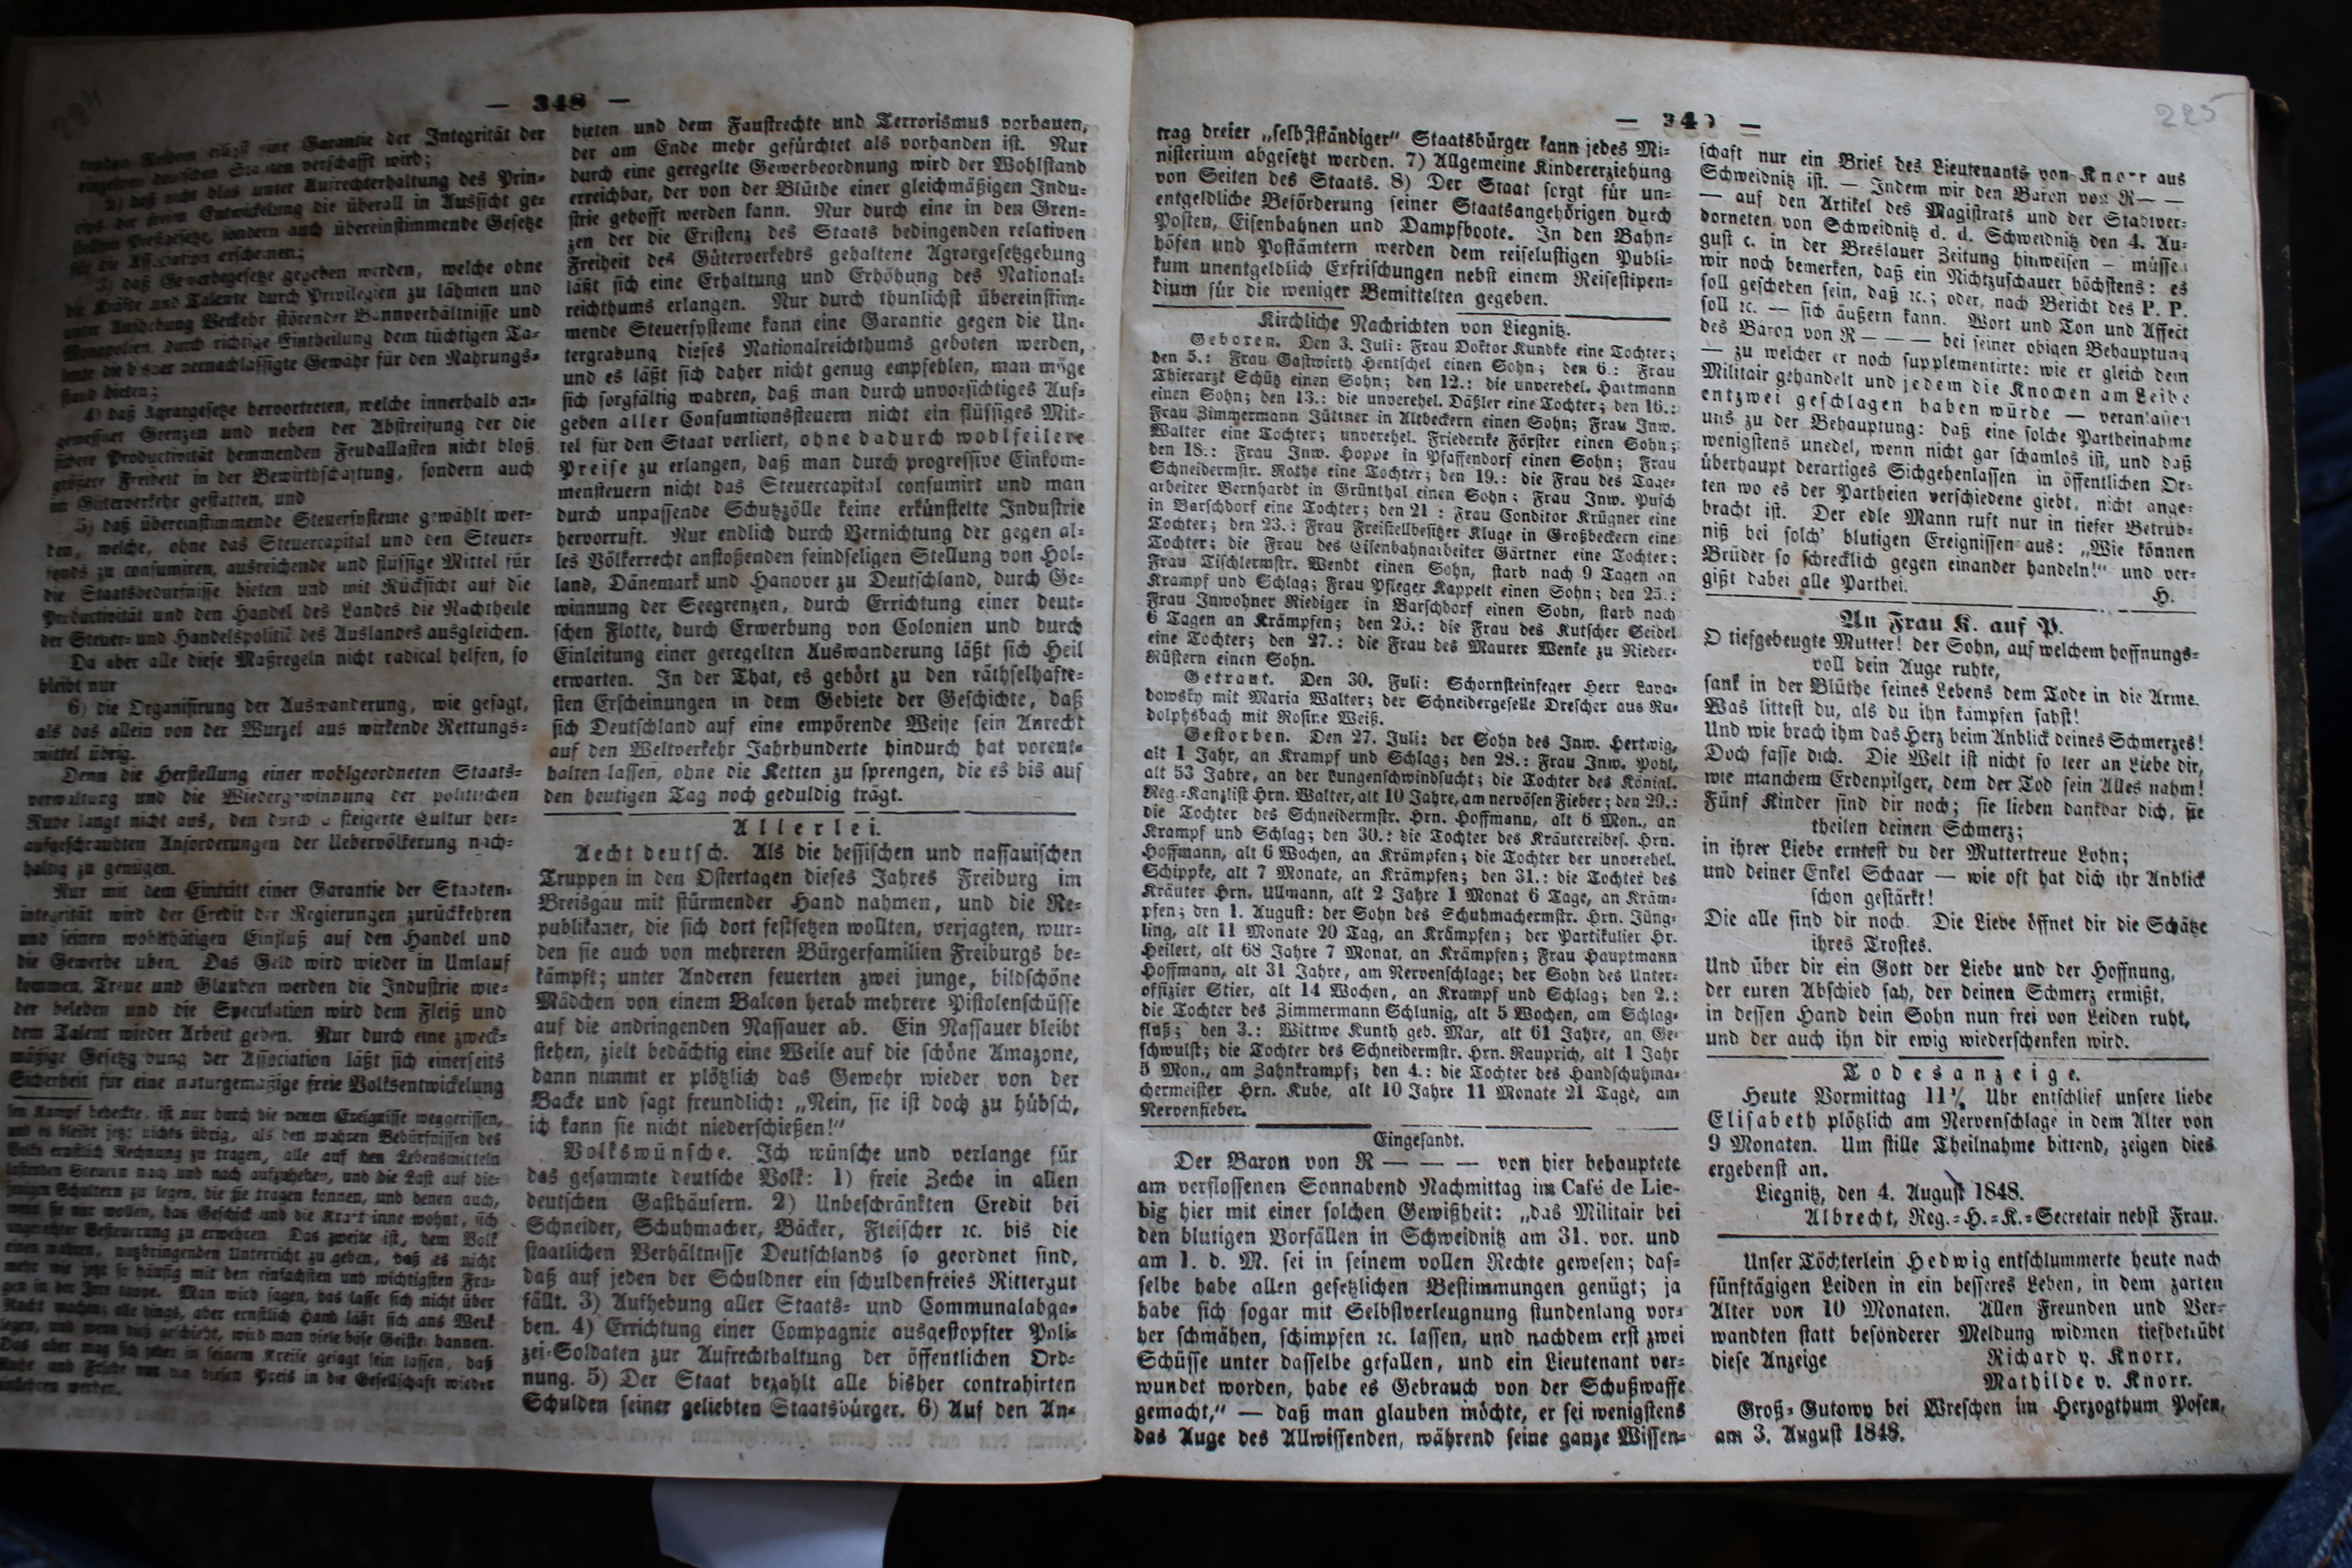 — 348 —
einzelnen deutschen Staaten verschafft wird;
2) daß nicht blos unter Aufrechterhaltung des Prin-
cips der freien Entwickelung die überall in Aussicht ge-
stellten Preßgesetze, sondern auch übereinstimmende Gesetze
für die Association erscheinen;
3) daß Gewerbegesetze gegeben werden, welche ohne
die Kräfte und Talente durch Privilegien zu lähmen und
unter Aufhebung Verkehr störender Bannverhältnisse und
Monopolien, durch richtige Eintheilung dem tüchtigen Ta-
lente die bisher vernachlässigte Gewähr für den Nahrungs-
stand bieten;
4) daß Agrargesetze hervortreten, welche innerhalb an-
gemessner Grenzen und neben der Abstreifung der die
höhere Productivität hemmenden Feudallasten nicht bloß
größere Freiheit in der Bewirthschaftung, sondern auch
im Güterverkehr gestatten, und
5) daß übereinstimmende Steuersysteme gewählt wer-
den, welche, ohne das Steuercapital und den Steuer-
fonds zu consumiren, ausreichende und flüssige Mittel für
die Staatsbedürfnisse bieten und mit Rücksicht auf die
Productivität und den Handel des Landes die Nachtheile
der Steuer- und Handelspolitik des Auslandes ausgleichen.
Da aber alle diese Maßregeln nicht radical helfen, so
bleibt nur
6) die Organisirung der Auswanderung, wie gesagt,
als das allein von der Wurzel aus wirkende Rettungs-
mittel übrig.
Denn die Herstellung einer wohlgeordneten Staats-
verwaltung und die Wiedergewinnung der politischen
Ruhe langt nicht aus, den durch gesteigerte Cultur her-
aufgeschraubten Anforderungen der Uebervölkerung nach-
haltig zu genügen.
Nur mit dem Eintritt einer Garantie der Staaten-
integrität wird der Credit der Regierungen zurückkehren
und seinen wohlthätigen Einfluß auf den Handel und
die Gewerbe üben. Das Geld wird wieder in Umlauf
kommen, Treue und Glauben werden die Industrie wie-
der beleben und die Speculation wird dem Fleiß und
dem Talent wieder Arbeit geben. Nur durch eine zweck-
mäßige Gesetzgebung der Association läßt sich einerseits
Sicherheit für eine naturgemäßige freie Volksentwickelung
sen Kampf bedeckte, ist nur durch die neuen Ereignisse weggerissen,
und es bleibt jetzt nichts übrig, als den wahren Bedürfnissen des
Volks ernstlich Rechnung zu tragen, alle auf den Lebensmitteln
lastenden Steuern nach und nach aufzuheben, und die Last auf die-
jenigen Schultern zu legen, die sie tragen können, und denen auch,
wenn sie nur wollen, das Geschick und die Kraft inne wohnt, sich
ungerechter Besteuerung zu erwehren. Das zweite ist, dem Volk
einen wahren, nutzbringenden Unterricht zu geben, daß es nicht
mehr wie jetzt so häufig mit den einfachsten und wichtigsten Fra-
gen in der Irre tappe. Man wird sagen, das lasse sich nicht über
Nacht machen; allerdings, aber ernstlich Hand läßt sich ans Werk
legen, und wenn dieß geschieht, wird man viele böse Geister bannen.
Das aber mag sich jeder in seinem Kreise gesagt sein lassen, daß
Ruhe und Friede nur um diesen Preis in die Gesellschaft wieder
einkehren werden.
bieten und dem Faustrechte und Terrorismus vorbauen,
der am Ende mehr gefürchtet als vorhanden ist. Nur
durch eine geregelte Gewerbeordnung wird der Wohlstand
erreichbar, der von der Blüthe einer gleichmäßigen Indu-
strie gehofft werden kann. Nur durch eine in den Gren-
zen der die Existenz des Staats bedingenden relativen
Freiheit des Güterverkehrs gehaltene Agrargesetzgebung
läßt sich eine Erhaltung und Erhöhung des National-
reichthums erlangen. Nur durch thunlichst übereinstim-
mende Steuersysteme kann eine Garantie gegen die Un-
tergrabung dieses Nationalreichthums geboten werden,
und es läßt sich daher nicht genug empfehlen, man möge
sich sorgfältig wahren, daß man durch unvorsichtiges Auf-
geben aller Consumtionssteuern nicht ein flüssiges Mit-
tel für den Staat verliert, ohne dadurch wohlfeilere
Preise zu erlangen, daß man durch progressive Einkom-
mensteuern nicht das Steuercapital consumirt und man
durch unpassende Schutzzölle keine erkünstelte Industrie
hervorruft. Nur endlich durch Vernichtung der gegen al-
les Völkerrecht anstoßenden feindseligen Stellung von Hol-
land, Dänemark und Hanover zu Deutschland, durch Ge-
winnung der Seegrenzen, durch Errichtung einer deut-
schen Flotte, durch Erwerbung von Colonien und durch
Einleitung einer geregelten Auswanderung läßt sich Heil
erwarten. In der That, es gehört zu den räthselhafte-
sten Erscheinungen in dem Gebiete der Geschichte, daß
sich Deutschland auf eine empörende Weise sein Anrecht
auf den Weltverkehr Jahrhunderte hindurch hat vorent-
halten lassen, ohne die Ketten zu sprengen, die es bis auf
den heutigen Tag noch geduldig trägt.
Allerlei.
Aecht deutsch. Als die hessischen und nassauischen
Truppen in den Ostertagen dieses Jahres Freiburg im
Breisgau mit stürmender Hand nahmen, und die Re-
publikaner, die sich dort festsetzen wollten, verjagten, wur-
den sie auch von mehreren Bürgerfamilien Freiburgs be-
kämpft; unter Anderen feuerten zwei junge, bildschöne
Mädchen von einem Balcon herab mehrere Pistolenschüsse
auf die andringenden Nassauer ab. Ein Nassauer bleibt
stehen, zielt bedächtig eine Weile auf die schöne Amazone,
dann nimmt er plötzlich das Gewehr wieder von der
Backe und sagt freundlich: „Nein, sie ist doch zu hübsch,
ich kann sie nicht niederschießen!“
Volkswünsche. Ich wünsche und verlange für
das gesammte deutsche Volk: 1) freie Zeche in allen
deutschen Gasthäusern. 2) Unbeschränkten Credit bei
Schneider, Schuhmacher, Bäcker, Fleischer ꝛc. bis die
staatlichen Verhältnisse Deutschlands so geordnet sind,
daß auf jeden der Schuldner ein schuldenfreies Rittergut
fällt. 3) Aufhebung aller Staats- und Communalabga-
ben. 4) Errichtung einer Compagnie ausgestopfter Poli-
zei-Soldaten zur Aufrechthaltung der öffentlichen Ord-
nung. 5) Der Staat bezahlt alle bisher contrahirten
Schulden seiner geliebten Staatsbürger. 6) Auf den An-
— 349 —
225
trag dreier „selbstständiger“ Staatsbürger kann jedes Mi-
nisterium abgesetzt werden. 7) Allgemeine Kindererziehung
von Seiten des Staats. 8) Der Staat sorgt für un-
entgeldliche Beförderung seiner Staatsangehörigen durch
Posten, Eisenbahnen und Dampfboote. In den Bahn-
höfen und Postämtern werden dem reiselustigen Publi-
kum unentgeldlich Erfrischungen nebst einem Reisestipen-
dium für die weniger Bemittelten gegeben.
Kirchliche Nachrichten von Liegnitz.
Geboren. Den 3. Juli: Frau Doktor Kundke eine Tochter;
den 5.: Frau Gastwirth Hentschel einen Sohn; den 6.: Frau
Thierarzt Schütz einen Sohn; den 12.: die unverehel. Hartmann
einen Sohn; den 13.: die unverehel. Däßler eine Tochter; den 16.:
Frau Zimmermann Jüttner in Altbeckern einen Sohn; Frau Inw.
Walter eine Tochter; unverehel. Friederike Förster einen Sohn;
den 18.: Frau Inw. Hoppe in Pfaffendorf einen Sohn; Frau
Schneidermstr. Rothe eine Tochter; den 19.: die Frau des Tage-
arbeiter Bernhardt in Grünthal einen Sohn; Frau Inw. Pusch
in Barschdorf eine Tochter; den 21: Frau Conditor Krügner eine
Tochter; den 23.: Frau Freistellbesitzer Kluge in Großbeckern eine
Tochter; die Frau des Eisenbahnarbeiter Gärtner eine Tochter;
Frau Tischlermstr. Wendt einen Sohn, starb nach 9 Tagen an
Krampf und Schlag; Frau Pfleger Kappelt einen Sohn; den 25.:
Frau Inwohner Riediger in Barschdorf einen Sohn, starb nach
6 Tagen an Krämpfen; den 25.: die Frau des Kutscher Seidel
eine Tochter; den 27.: die Frau des Maurer Wenke zu Nieder-
Rüstern einen Sohn.
Getraut. Den 30. Juli: Schornsteinfeger Herr Lava-
dowsky mit Maria Walter; der Schneidergeselle Drescher aus Ru-
dolphsbach mit Rosine Weiß.
Gestorben. Den 27. Juli: der Sohn des Inw. Hertwig,
alt 1 Jahr, an Krampf und Schlag; den 28.: Frau Inw. Pohl,
alt 53 Jahre, an der Lungenschwindsucht; die Tochter des Königl.
Reg.-Kanzlist Hrn. Walter, alt 10 Jahre, am nervösen Fieber; den 29.:
die Tochter des Schneidermstr. Hrn. Hoffmann, alt 6 Mon., an
Krampf und Schlag; den 30.: die Tochter des Kräutereibes. Hrn.
Hoffmann, alt 6 Wochen, an Krämpfen; die Tochter der unverehel.
Schippke, alt 7 Monate, an Krämpfen; den 31.: die Tochter des
Kräuter Hrn. Ullmann, alt 2 Jahre 1 Monat 6 Tage, an Kräm-
pfen; den 1. August: der Sohn des Schuhmachermstr. Hrn. Jüng-
ling, alt 11 Monate 20 Tag, an Krämpfen; der Partikulier Hr.
Heilert, alt 68 Jahre 7 Monat, an Krämpfen; Frau Hauptmann
Hoffmann, alt 31 Jahre, am Nervenschlage; der Sohn des Unter-
offizier Stier, alt 14 Wochen, an Krampf und Schlag; den 2.:
die Tochter des Zimmermann Schlunig, alt 5 Wochen, am Schlag-
fluß; den 3.: Wittwe Kunth geb. Mar, alt 61 Jahre, an Ge-
schwulst; die Tochter des Schneidermstr. Hrn. Rauprich, alt 1 Jahr
5 Mon., am Zahnkrampf; den 4.: die Tochter des Handschuhma-
chermeister Hrn. Kube, alt 10 Jahre 11 Monate 21 Tage, am
Nervenfieber.
Eingesandt.
Der Baron von R — — — von hier behauptete
am verflossenen Sonnabend Nachmittag im Café de Lie-
big hier mit einer solchen Gewißheit: „das Militair bei
den blutigen Vorfällen in Schweidnitz am 31. vor. und
am 1. d. M. sei in seinem vollen Rechte gewesen; das-
selbe habe allen gesetzlichen Bestimmungen genügt; ja
habe sich sogar mit Selbstverleugnung stundenlang vor-
her schmähen, schimpfen ꝛc. lassen, und nachdem erst zwei
Schüsse unter dasselbe gefallen, und ein Lieutenant ver-
wundet worden, habe es Gebrauch von der Schußwaffe
gemacht,“ — daß man glauben möchte, er sei wenigstens
das Auge des Allwissenden, während seine ganze Wissen-
schaft nur ein Brief des Lieutenants von Knorr aus
Schweidnitz ist. — Indem wir den Baron von R— —
— auf den Artikel des Magistrats und der Stadtver-
dorneten von Schweidnitz d. d. Schweidnitz den 4. Au-
gust c. in der Breslauer Zeitung hinweisen — müssen
wir noch bemerken, daß ein Nichtzuschauer höchstens: es
soll geschehen sein, daß ꝛc.; oder, nach Bericht des P. P.
soll ꝛc. — sich äußern kann. Wort und Ton und Affect
des Baron von R — — — bei seiner obigen Behauptung
— zu welcher er noch supplementirte: wie er gleich dem
Militair gehandelt und jedem die Knochen am Leibe
entzwei geschlagen haben würde — veranlassen
uns zu der Behauptung: daß eine solche Partheinahme
wenigstens unedel, wenn nicht gar schamlos ist, und daß
überhaupt derartiges Sichgehenlassen in öffentlichen Or-
ten wo es der Partheien verschiedene giebt, nicht ange-
bracht ist. Der edle Mann ruft nur in tiefer Betrüb-
niß bei solch' blutigen Ereignissen aus: „Wie können
Brüder so schrecklich gegen einander handeln!“ und ver-
gißt dabei alle Parthei.
H.
An Frau K. auf P.
O tiefgebeugte Mutter! der Sohn, auf welchem hoffnungs-
voll dein Auge ruhte,
sank in der Blüthe seines Lebens dem Tode in die Arme.
Was littest du, als du ihn kämpfen sahst!
Und wie brach ihm das Herz beim Anblick deines Schmerzes!
Doch fasse dich. Die Welt ist nicht so leer an Liebe dir,
wie manchem Erdenpilger, dem der Tod sein Alles nahm!
Fünf Kinder sind dir noch; sie lieben dankbar dich, sie
theilen deinen Schmerz;
in ihrer Liebe erntest du der Muttertreue Lohn;
und deiner Enkel Schaar — wie oft hat dich ihr Anblick
schon gestärkt!
Die alle sind dir noch. Die Liebe öffnet dir die Schätze
ihres Trostes.
Und über dir ein Gott der Liebe und der Hoffnung,
der euren Abschied sah, der deinen Schmerz ermißt,
in dessen Hand dein Sohn nun frei von Leiden ruht,
und der auch ihn dir ewig wiederschenken wird.
Todesanzeige.
Heute Vormittag 11½ Uhr entschlief unsere liebe
Elisabeth plötzlich am Nervenschlage in dem Alter von
9 Monaten. Um stille Theilnahme bittend, zeigen dies
ergebenst an.
Liegnitz, den 4. August 1848.
Albrecht, Reg.-H.-K.-Secretair nebst Frau.
Unser Töchterlein Hedwig entschlummerte heute nach
fünftägigen Leiden in ein besseres Leben, in dem zarten
Alter von 10 Monaten. Allen Freunden und Ver-
wandten statt besonderer Meldung widmen tiefbetrübt
diese Anzeige
Richard v. Knorr.
Mathilde v. Knorr.
Groß-Gutowy bei Wreschen im Herzogthum Posen,
am 3. August 1848.